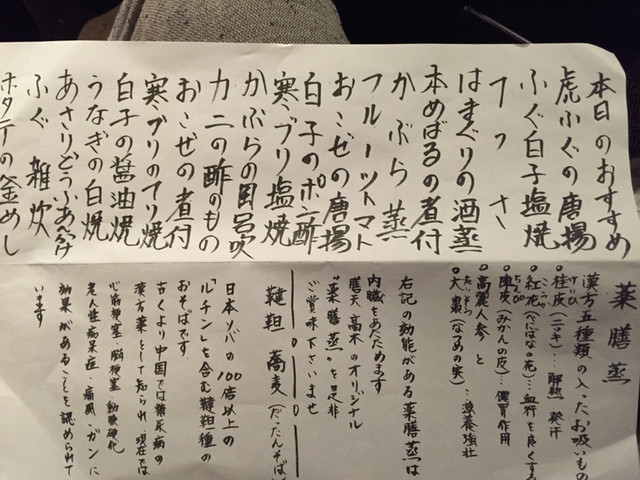 本日のおすすめ
虎ふぐの唐揚
ふぐ白子塩焼
はまぐりの酒蒸
本めばるの煮付
かぶら蒸
フルーツトマト
おこぜの唐揚
白子のポン酢
寒ブリ塩焼
かぶらの風呂吹
カニの酢のもの
おこぜの煮付
寒ブリのてり焼
白子の醤油焼
うなぎの白焼
あさりどうふあんかけ
ふぐ雑炊
ホタテの釜めし
薬膳蒸
漢方五種類の入ったお吸いもの
桂皮(ニッキ)…解熱、発汗
紅花(べにばなの花)…血行を良くする
陳皮(みかんの皮)…健胃作用
高麗人参と
大棗(なつめの実)…滋養強壮
右記の効能がある薬膳蒸は
内臓をあたためます
膳天高木のオリジナル
"薬膳蒸"を是非
ご賞味下さいませ
韃靼蕎麦(だったんそば)
日本ソバの100倍以上の
「ルチン」を含む韃靼種の
おそばです
古くより中国では糖尿病の
漢方薬として知られ、現在では
心筋梗塞・脳梗塞・動脈硬化
老人性痴呆症・痛風・ガンに
効果があることを認められて
います